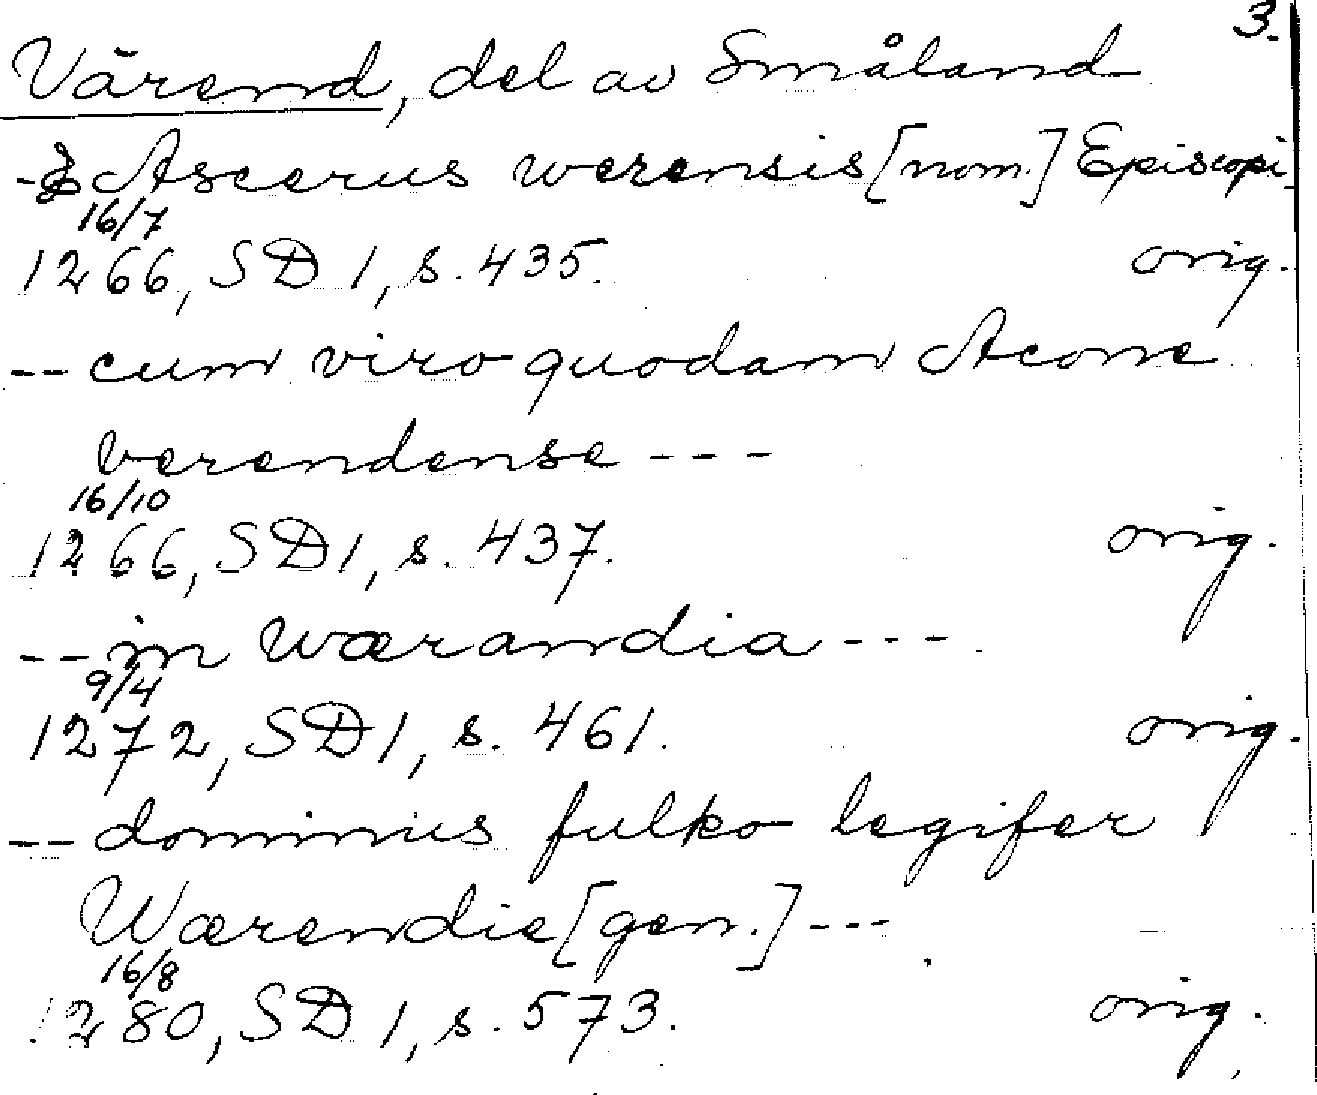 3.
Värend, del av Småland
- & Ascerus werensis [nom.] Episcopi
16/7
1266, SD 1, s. 435. orig.
-- cum viro quodam Acone
verendense ---
16/10
1266, SD 1, s. 437. orig.
-- in Wærandia ---
9/4
1272, SD 1, s. 461. orig.
-- dominus fulko legifer
Wærendie [gen.] ---
16/8
1280, SD 1, s. 573. orig.